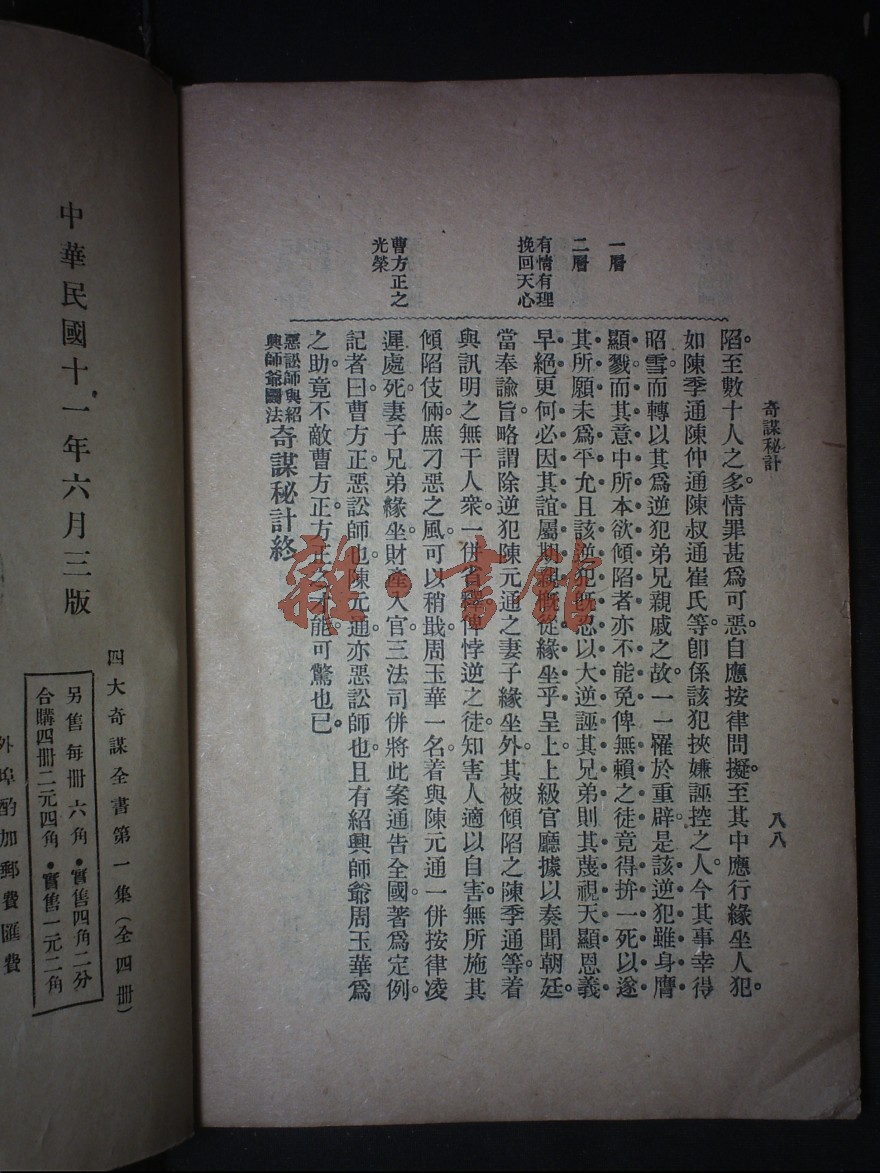 奇謀秘計
八八
陷至數十人之多。情罪甚爲可惡。自應按律問擬。至其中應行緣坐人犯。
如陳季通陳仲通陳叔通崔氏等。卽係該犯挾嫌誣控之人。今其事幸得
昭雪。而轉以其爲逆犯弟兄親戚之故。一一罹於重辟。是該逆犯雖身膺
顯戮。而其意中所本欲傾陷者。亦不能免。俾無賴之徒。竟得拚一死以遂
其所願。未爲平允。且該逆犯旣忍以大逆誣其兄弟。則其蔑視天顯恩義
早絕。更何必因其誼屬期親。概從緣坐乎。呈上。上級官廳據以奏聞朝廷。
當奉諭旨。略謂除逆犯陳元通之妻子緣坐外。其被傾陷之陳季通等。着
與訊明之無干人衆。一併省釋。俾悖逆之徒。知害人適以自害。無所施其
傾陷伎倆。庶刁惡之風。可以稍戢。周玉華一名。着與陳元通一併按律凌
遲處死。妻子兄弟緣坐。財產入官。三法司併將此案通告全國。著爲定例。
記者曰。曹方正。惡訟師也。陳元通亦惡訟師也。且有紹興師爺周玉華爲
之助。竟不敵曹方正。方正之才能。可驚也已。
惡訟師與紹
興師爺鬭法
奇謀秘計終
一層
二層
有情有理
挽回天心
曹方正之
光榮
雜·書館
中華民國十一年六月三版
四大奇謀全書第一集(全四册)
另售每册六角·實售四角二分
合購四册二元四角·實售一元二角
外埠酌加郵費匯費